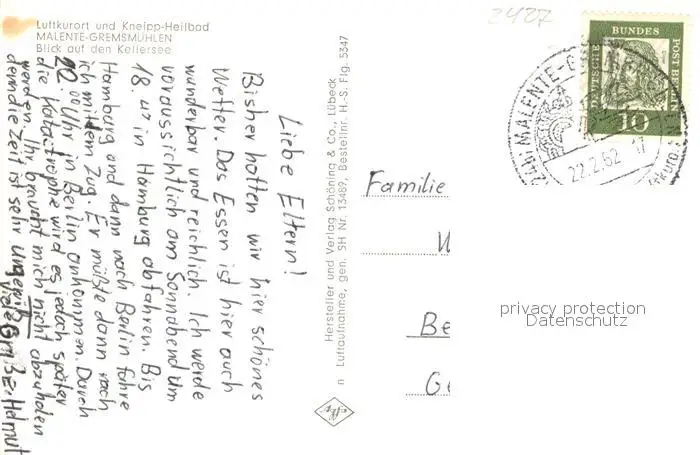 Luftkurort und Kneipp-Heilbad
MALENTE-GREMSMÜHLEN
Blick auf den Kellersee
Liebe Eltern!
Bisher hatten wir hier schönes
Wetter. Das Essen ist hier auch
wunderbar und reichlich. Ich werde
voraussichtlich am Sonnabend um
18.47 in Hamburg abfahren. Bis
Hamburg und dann nach Berlin fahre
ich mit dem Zug. Er müßte dann nach
22.00 Uhr in Berlin ankommen. Durch
die Katastrophe wird es jedoch später
werden. Ihr braucht mich nicht abzuholen
denn die Zeit ist sehr ungewiß.
Viele Grüße, Helmut
Hersteller und Verlag Schöning & Co., Lübeck
n Luftaufnahme, gen. SH Nr. 13489, Bestellnr. H.-S. Flg. 5347
2427
DEUTSCHE BUNDESPOST BERLIN
10
MALENTE-G
22.2.62 17
Familie
W
Be
Ge
privacy protection
Datenschutz